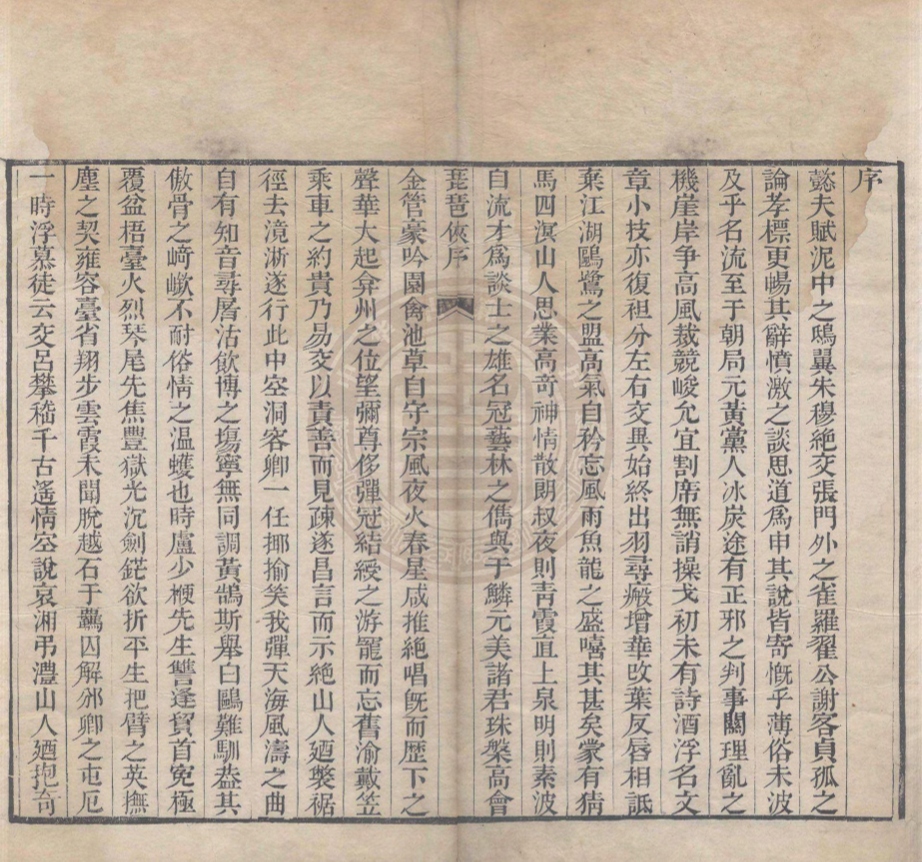 序
懿夫賦泥中之鴟翼朱穆絶交張門外之雀羅翟公謝客貞孤之
論孝標更暢其辭憤激之談思道爲申其說皆寄慨乎薄俗未波
及乎名流至于朝局元黃黨人冰炭途有正邪之判事關理亂之
機崖岸爭高風裁競峻允宜割席無誚操戈初未有詩酒浮名文
章小技亦復袒分左右交異始終出羽尋瘢增華改葉反唇相詆
棄江湖鷗鷺之盟高氣自矜忘風雨魚龍之盛嘻其甚矣蒙有猜
馬四溟山人思業高竒神情散朗叔夜則青霞直上泉明則素波
自流才爲談士之雄名冠藝林之儁與于鱗元美諸君珠槃高會
琵琶俠序
金管豪吟園禽池草自守宗風夜火春星咸推絶唱旣而歷下之
聲華大起弇州之位望彌尊侈彈冠結綬之游寵而忘舊渝戴笠
乘車之約貴乃易交以責善而見疎遂昌言而示絶山人廼褰裾
徑去滰淅遂行此中空洞容卿一任揶揄笑我彈天海風濤之曲
自有知音尋屠沽飲博之塲寧無同調黃鵠斯舉白鷗難馴葢其
傲骨之﨑嶔不耐俗情之温蠖也時盧少楩先生讐逢貿首寃極
覆盆梧臺火烈琴尾先焦豐獄光沉劍鋩欲折平生把臂之英撫
塵之契雍容臺省翔步雲霞未聞脫越石于羈囚解邠卿之屯厄
一時浮慕徒云交呂攀嵇千古遙情空說哀湘弔澧山人廼抱奇